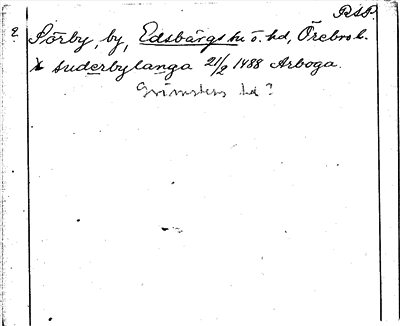 RSP.
? Sörby, by, Edsbärgs sn o. hd, Örebro l.
suderbylanga 21/2 1488 Arboga.
Grimstens hd?